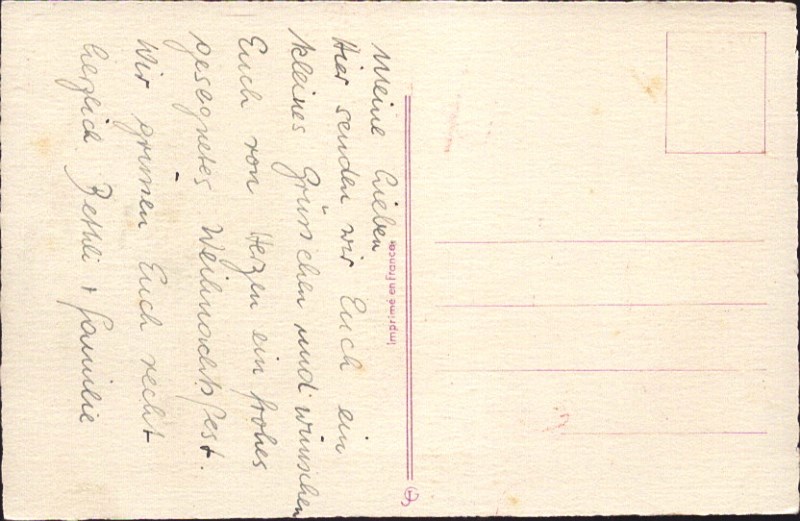 Meine Lieben
Hier senden wir Euch ein
kleines Grüsschen und wünschen
Euch von Herzen ein frohes
gesegnetes Weihnachtsfest.
Wir grüssen Euch recht
herzlich. Bethli + Familie
Imprimé en France